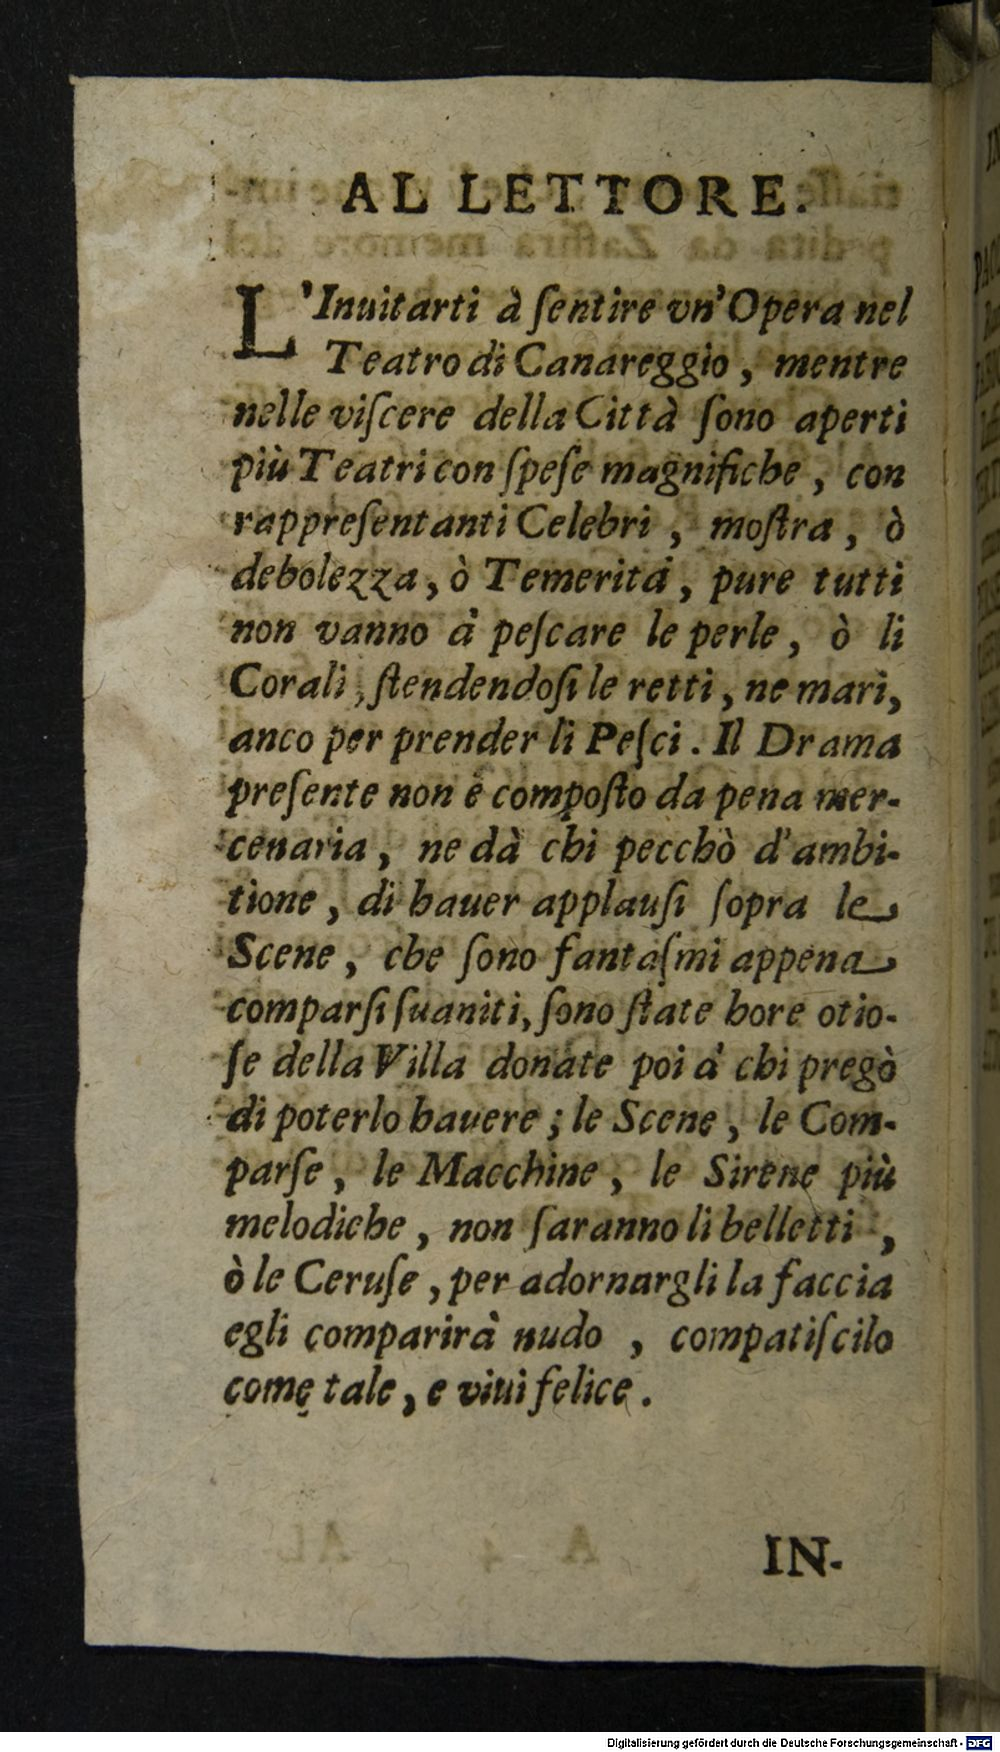 AL LETTORE.
L'Inuitarti à ſentire vn'Opera nel
Teatro di Canareggio, mentre
nelle viſcere della Città ſono aperti
più Teatri con ſpeſe magnifiche, con
rappreſentanti Celebri, moſtra, ò
debolezza, ò Temerità, pure tutti
non vanno à peſcare le perle, ò li
Corali, ſtendendoſi le retti, ne mari,
anco per prender li Peſci. Il Drama
preſente non è compoſto da pena mer-
cenaria, ne dà chi pecchò d'ambi-
tione, di hauer applauſi ſopra le
Scene, che ſono fantaſmi appena
comparſi ſuaniti, ſono ſtate hore otio-
ſe della Villa donate poi à chi pregò
di poterlo hauere; le Scene, le Com-
parſe, le Macchine, le Sirene più
melodiche, non ſaranno li belletti,
ò le Ceruſe, per adornargli la faccia
egli comparirà nudo, compatiſcilo
come tale, e viui felice.
IN-
Digitalisierung gefördert durch die Deutsche Forschungsgemeinschaft - DFG